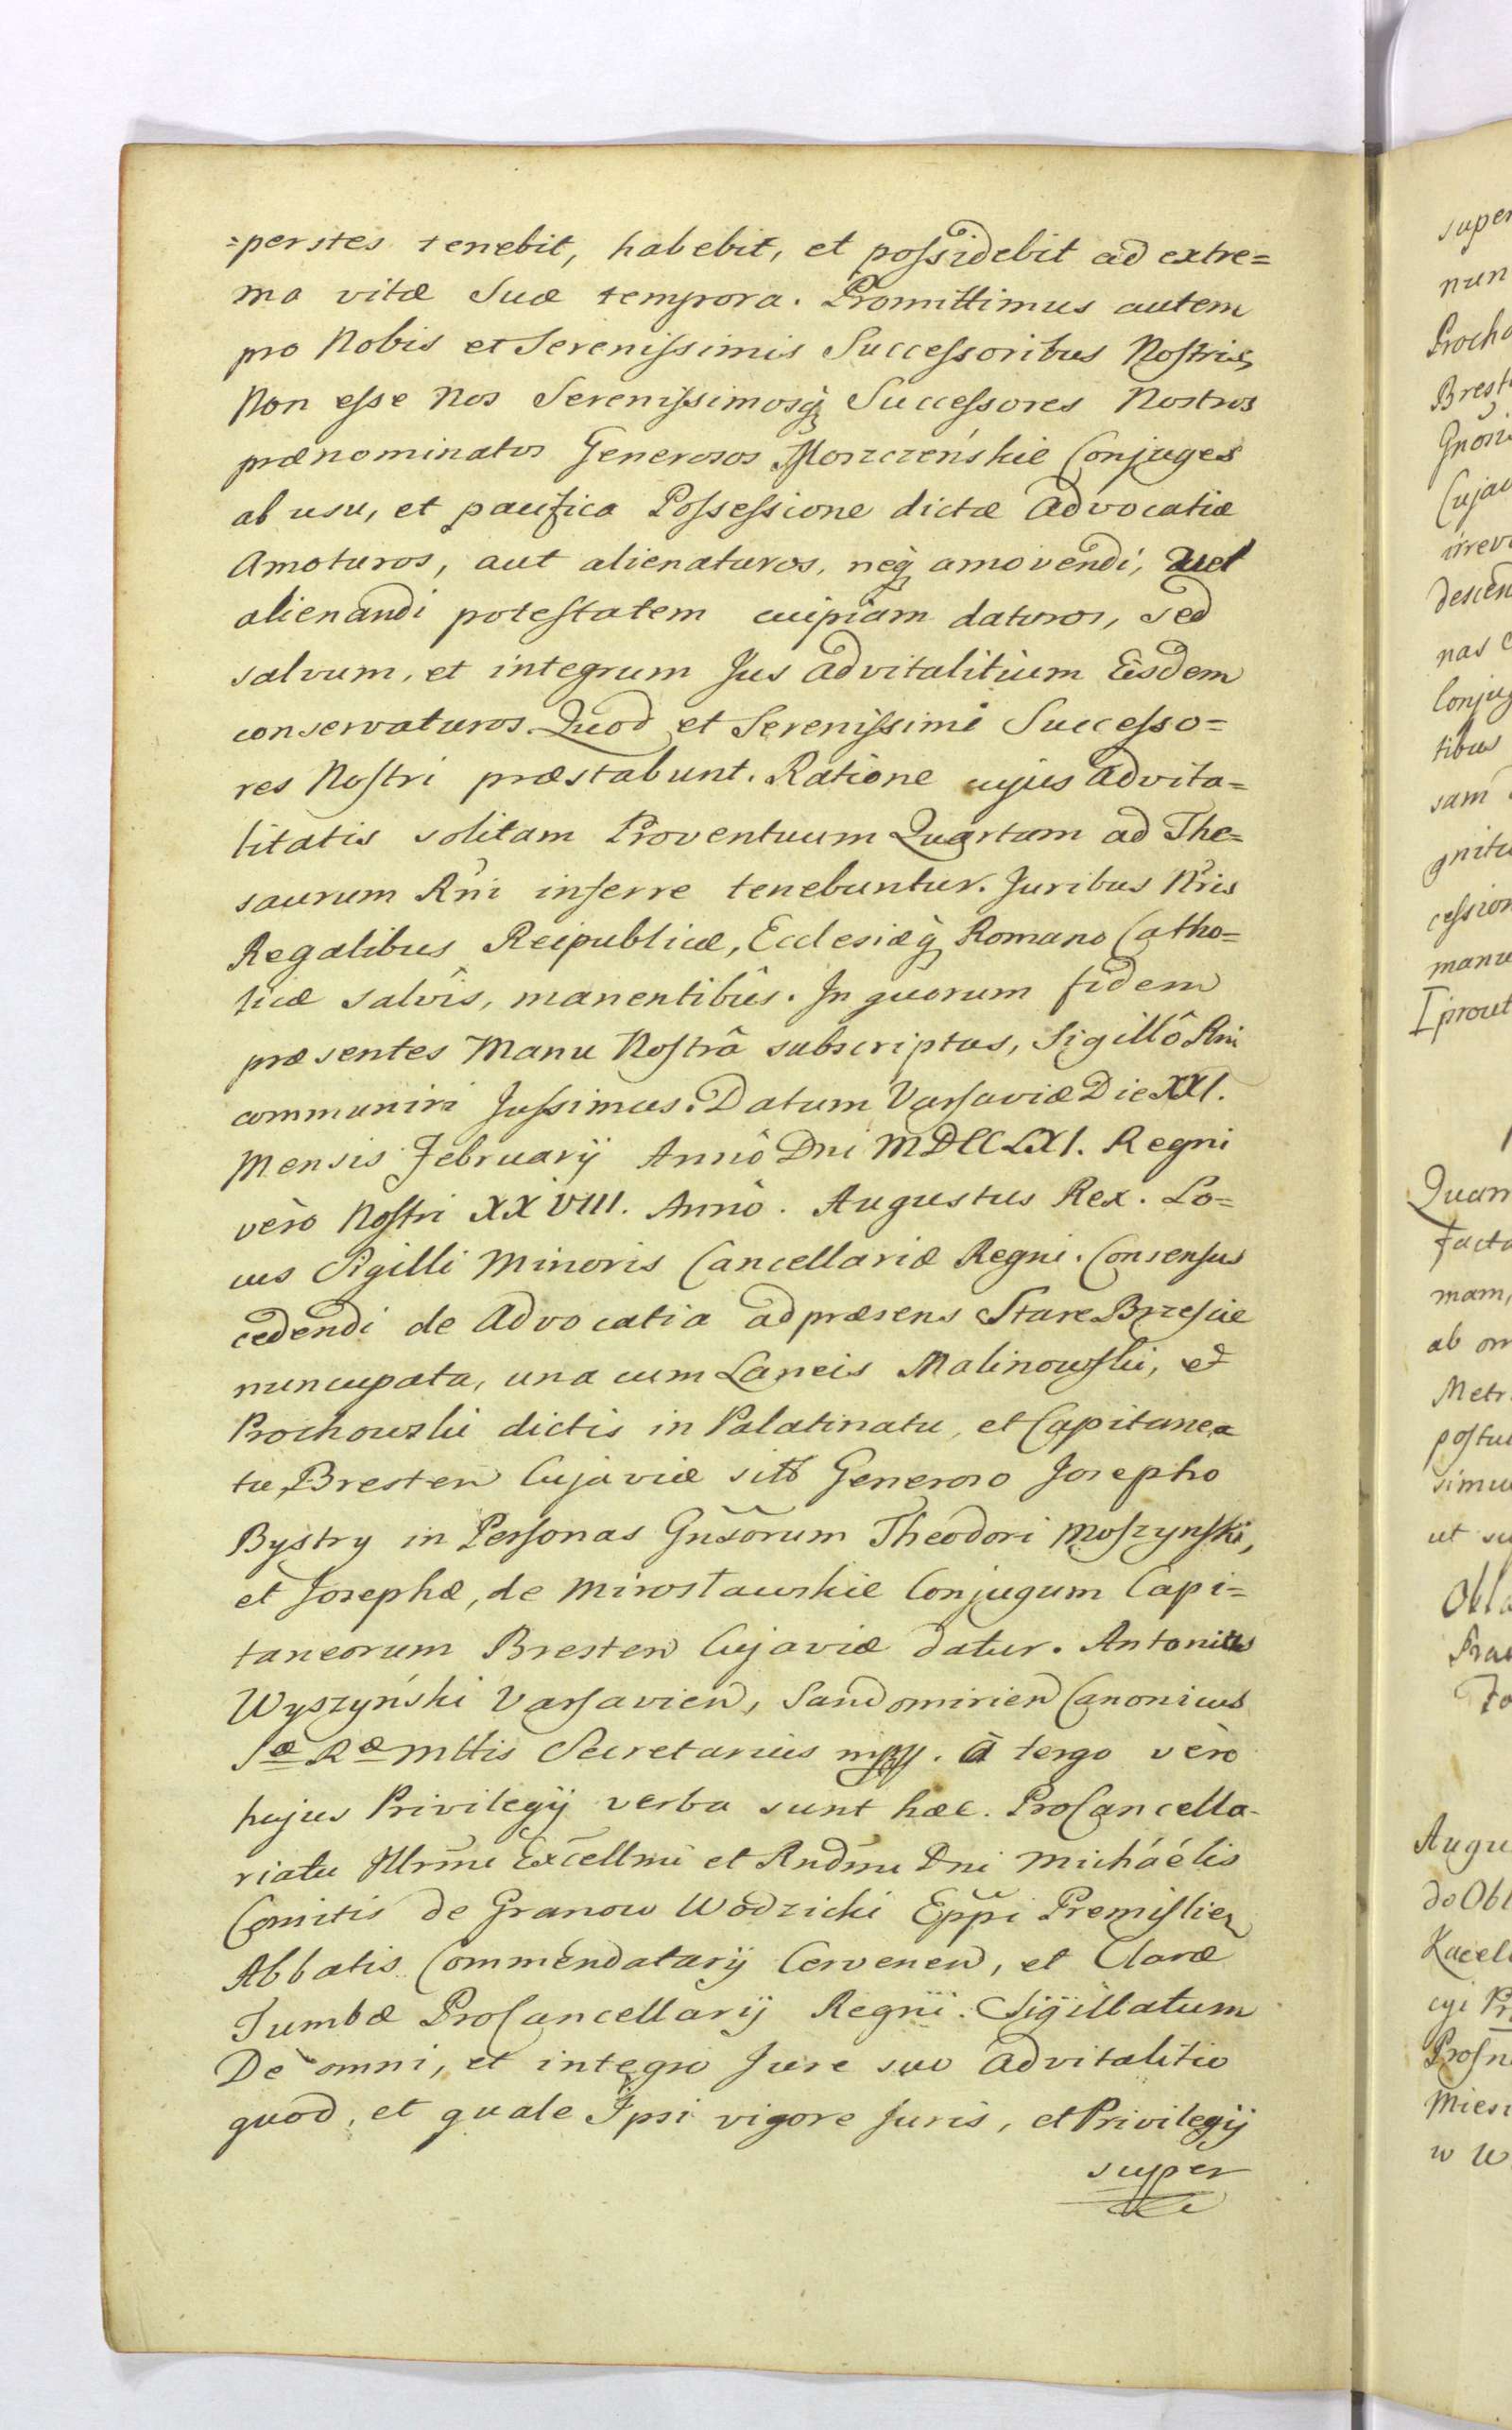 =perstes tenebit, habebit, et possidebit ad extre=
ma vitæ Suæ tempora. Promittimus autem
pro Nobis et Serenissimis Successoribus Nostris,
Non esse Nos Serenissimosq̀ Successores Nostros
prænominatos Generosos Moszczeńskie Conjuges
ab usu, et paufica Possessione dictæ Advocatiæ
Amoturos, aut alienaturos, neq̀ amovendi, vel
alienandi potestatem cuipiam daturos, sed
salvum, et integrum Jus advitalitium Eisdem
conservaturos. Quod et Serenissimi Successo=
res Nostri præstabunt. Ratione cujus Advita=
litatis solitam Proventuum Quartam ad The=
saurum Rni inferre tenebuntur. Juribus Nris
Regalibus Reipublicæ, Ecclesiæq̀ Romano Catho=
licæ salvîs, manentibûs. In quorum fidem
præsentes Manu Nostrâ subscriptas, Sigillô Rni
communiri Jussimus. Datum Varsaviæ Die XXI.
Mensis Februarÿ Annô Dni MDCCLXI. Regni
vèro Nostri XXVIII. Annô. Augustus Rex. Lo=
cus Sigilli Minoris Cancellariæ Regni. Consensus
cedendi de Advocatia ad præsens Stare Brzeście
nuncupata, una cum Laneis Malinowski, et
Prochowski dictis in Palatinatu, et Capitanea
tu Bresten Cujaviæ sitô Generoso Josepho
Bystry in Personas Gnsorum Theodori Moszynski,
et Josephæ, de Mirosławskie Conjugum Capi=
taneorum Bresten Cujaviæ datur. Antonius
Wyszyński Varsavien, Sandomirien Canonicus
Sæ Ræ Mttis Secretarius mpp. à tergo vèro
hujus Privilegÿ verba sunt hæc. ProCancella-
riatu Illrmi Excellmi et Rndmi Dni Micháélis
Comitis de Granow Wodzicki Eppi Premislien
Abbatis Commendatarÿ Cervenen, et Claræ
Tumbæ ProCancellarÿ Regni. Sigillatum
De omni, et integro Jure suo Advitalitio
quod, et quale Ipsi vigore Juris, et Privilegÿ
super